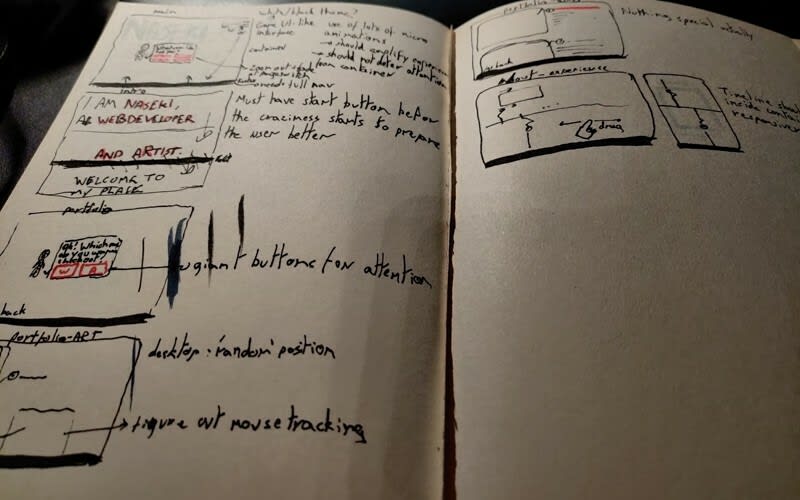 main
white/black theme?
NASEKI
Game UI-like
interface
container
use of lots of micro
animations
→ should amplify experience
→ should not deter attention
from container
→ needs full nav
intro
I AM NASEKI,
A WEBDEVELOPER
AND ARTIST
WELCOME TO
MY PLACE
Must have start button before
the craziness starts to prepare
the user better
portfolio
Oh! Which one
do you wanna
W A
back
giant buttons for attention
portfolio-ART
desktop: 'random' position
→ Figure out mouse tracking
Nothing special really
back
About-experience
drag
Timeline
inside